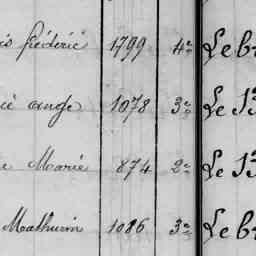 is frédéric 1799 4e Le br
ie ange 1078 3e Le 13
e Marie 874 2e Le 13
Mathurin 1086 3e Le br